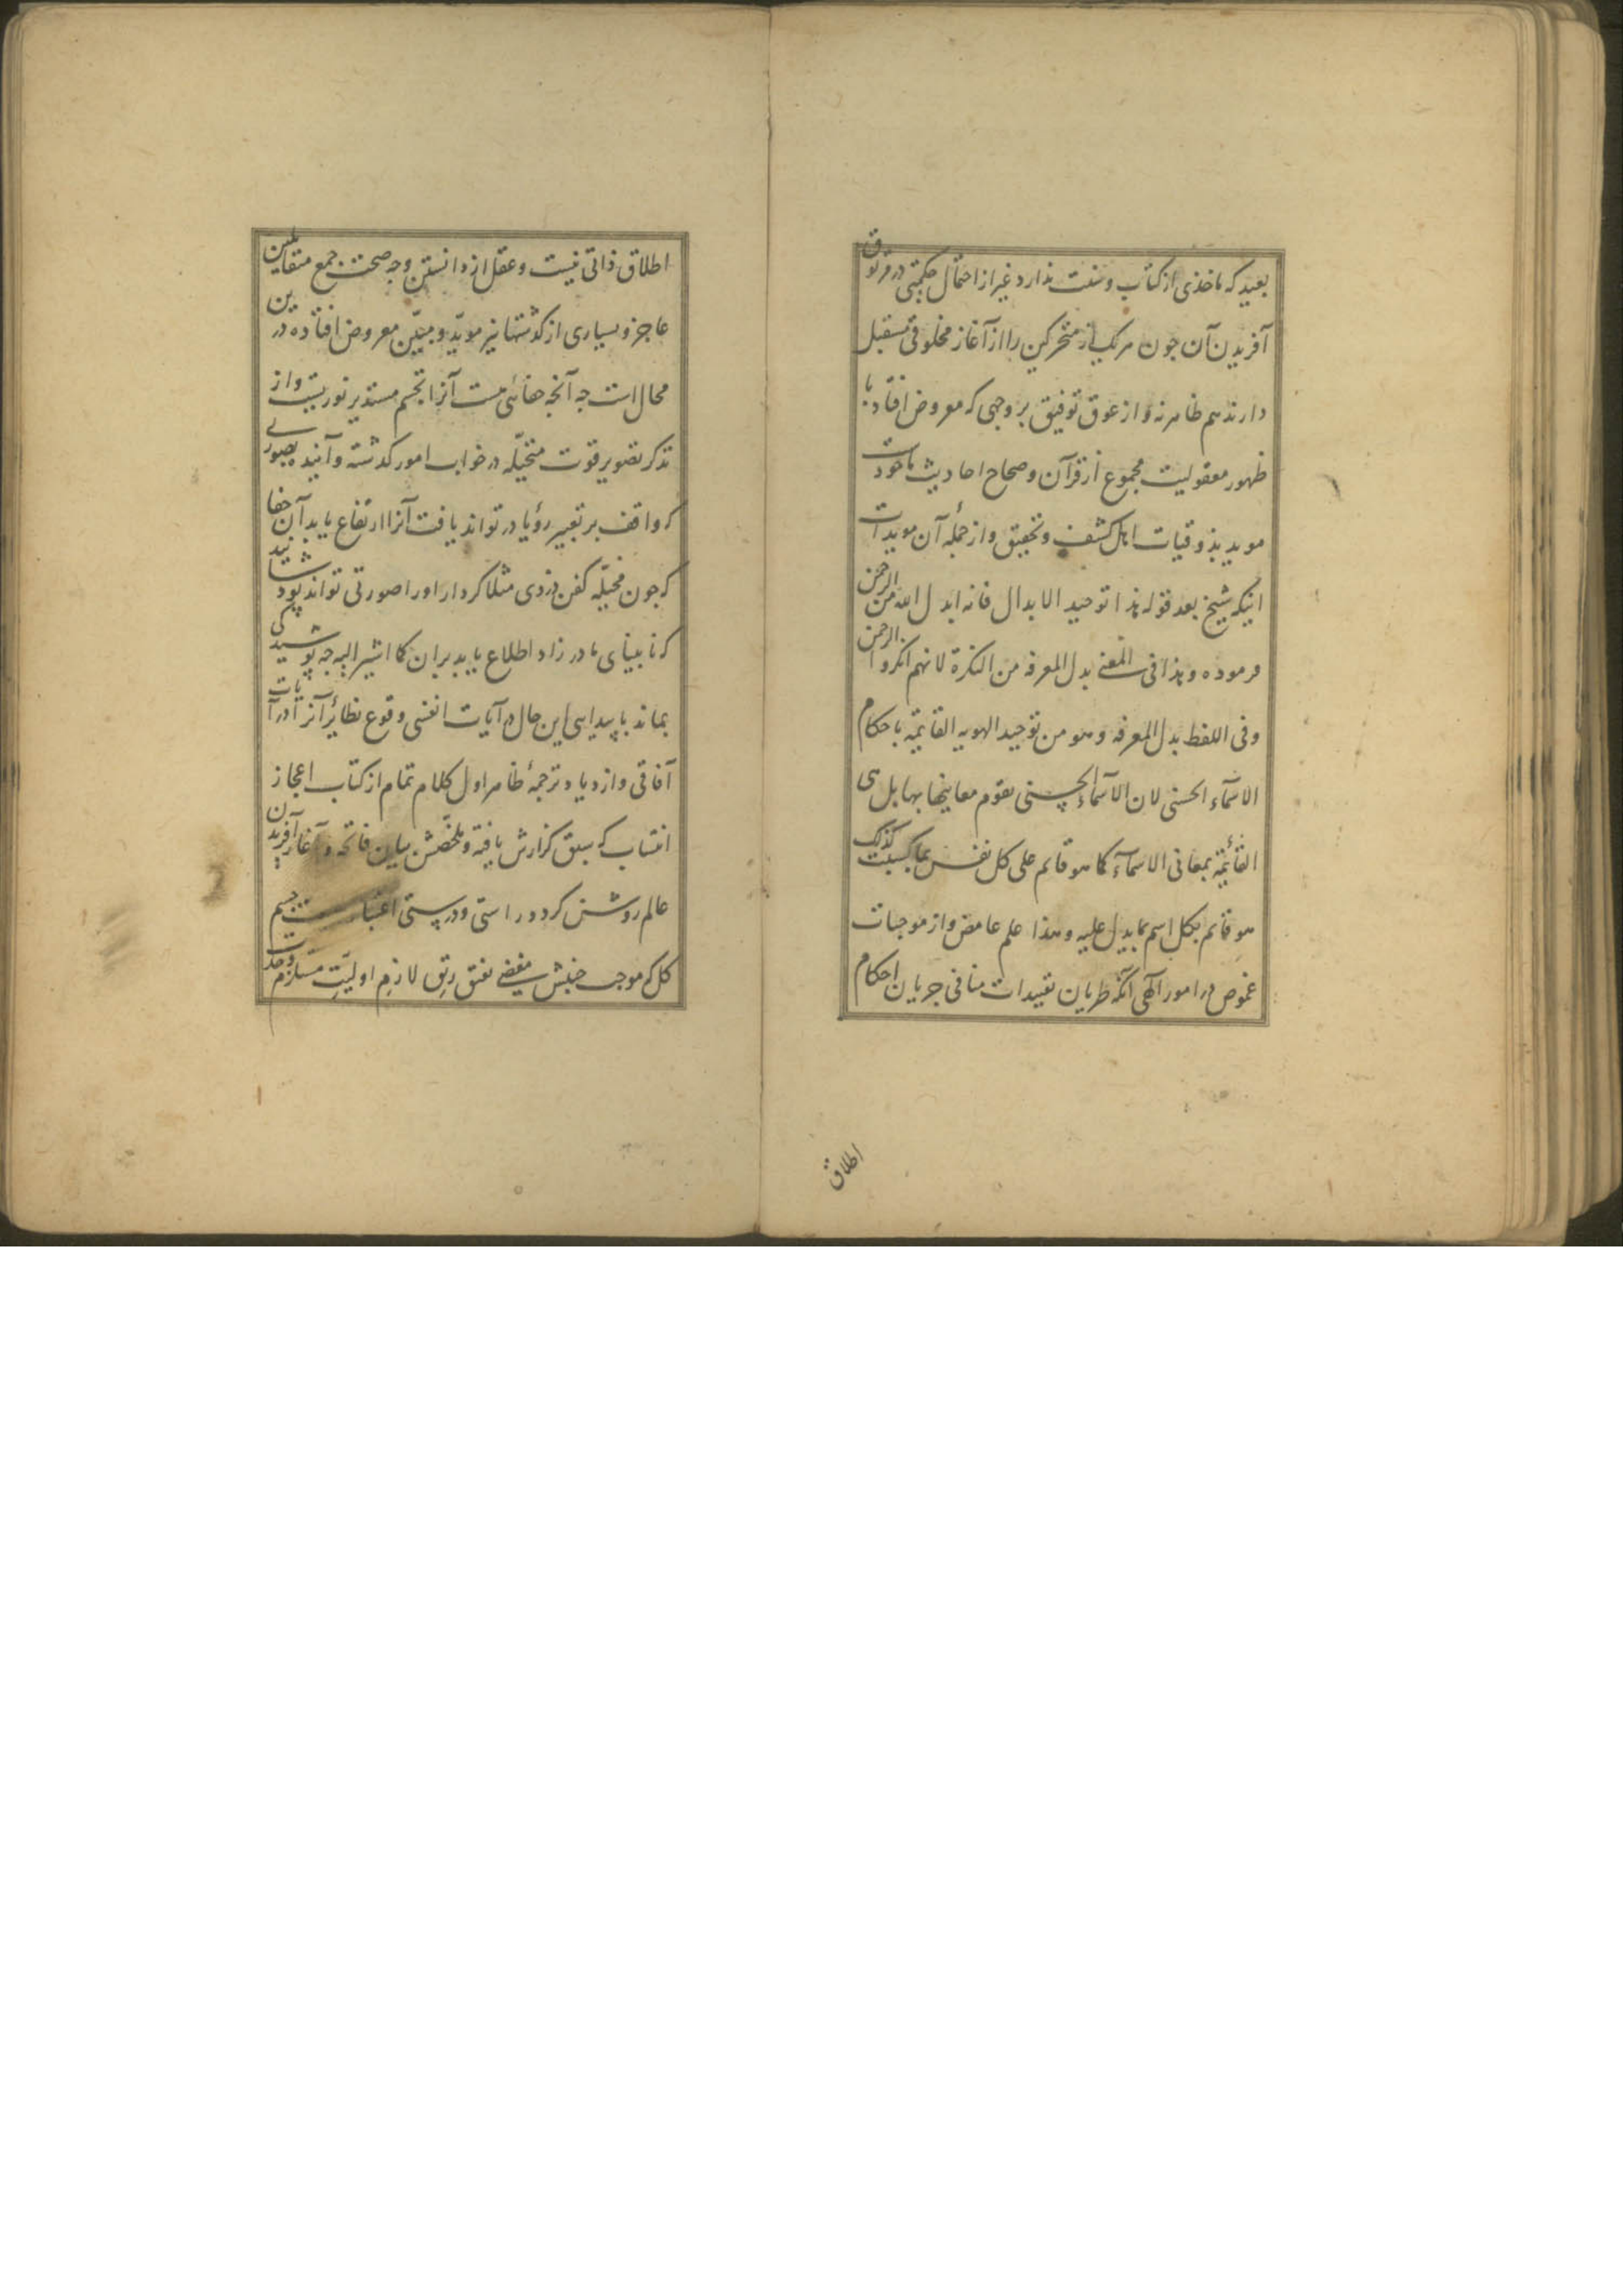 بعید که ماخذی از کتاب و سنت ندارد غیر از احتمال حکمتی در مرتوق
آفریدن آن چون هر یک از متحرکین را از آغاز مخلوقی مستقل
دارند هم ظاهر نه و از عوق توفیق بر وجهی که معروض افتاد با
ظهور معقولیت مجموع از قرآن و صحاح احادیث ماخوذست
موید بذوقیات اهل کشف و تحقیق و از جملهٔ آن مویدات
اینکه شیخ بعد قوله هذا توحید الابدال فانه ابدل الله من الرحمن
فرموده و هذا فی المعنی بدل المعرفه من النکرة لانهم انکروا الرحمن
و فی اللفظ بدل المعرفه و هو من توحید الهویه القایمة باحکام
الاسمآء الحسنی لان الاسمآء الحسنی تقوم معانیها بها بل هی
القائمة بمعانی الاسمآء کما هو قایم علی کل نفس بما کسبت کذلک
هو قایم بکل اسم بما یدل علیه و هذا علم غامض و از موجبات
غموض در امور الٓهی آنکه طریان تقییدات منافی جریان احکام
اطلاق
اطلاق ذاتی نیست و عقل از دانستن وجه صحت جمع متقابلین
عاجز و بسیاری از گذشتها نیز مویّد و مبیّن معروض افتاده در این
محال است چه آنچه خفائی هست آنرا تجسم مستدیر نوریست و از
تذکر تصویر قوت متخیّله در خواب امور گذشته و آینده بصورتے
که واقف بر تعبیر رؤیا در تواند یافت آنرا ارتفاع یابد آن خفا
که چون مخیّله کفن دزدی مثلا کردار او را صورتی تواند پوشانید
که نابینای مادر زاد اطلاع یابد بران کما اشیر الیه چه پوشیدگی
بماند با پیدایی این حال در آیات انفسی وقوع نظائر آنرا در آیات
آفاقی و ازدیاد ترجمهٔ ظاهر اول کلام تمام از کتاب اعجاز
انتساب که سبق گزارش یافته و ملخّصش بیان فاتحه و آغاز آفریدن
عالم روشن گردد راستی و درستی اعتبار جسم
کل که موجب جنبش مفضے بفتق رتق لازم اولیّتِ مستلزم وحدت